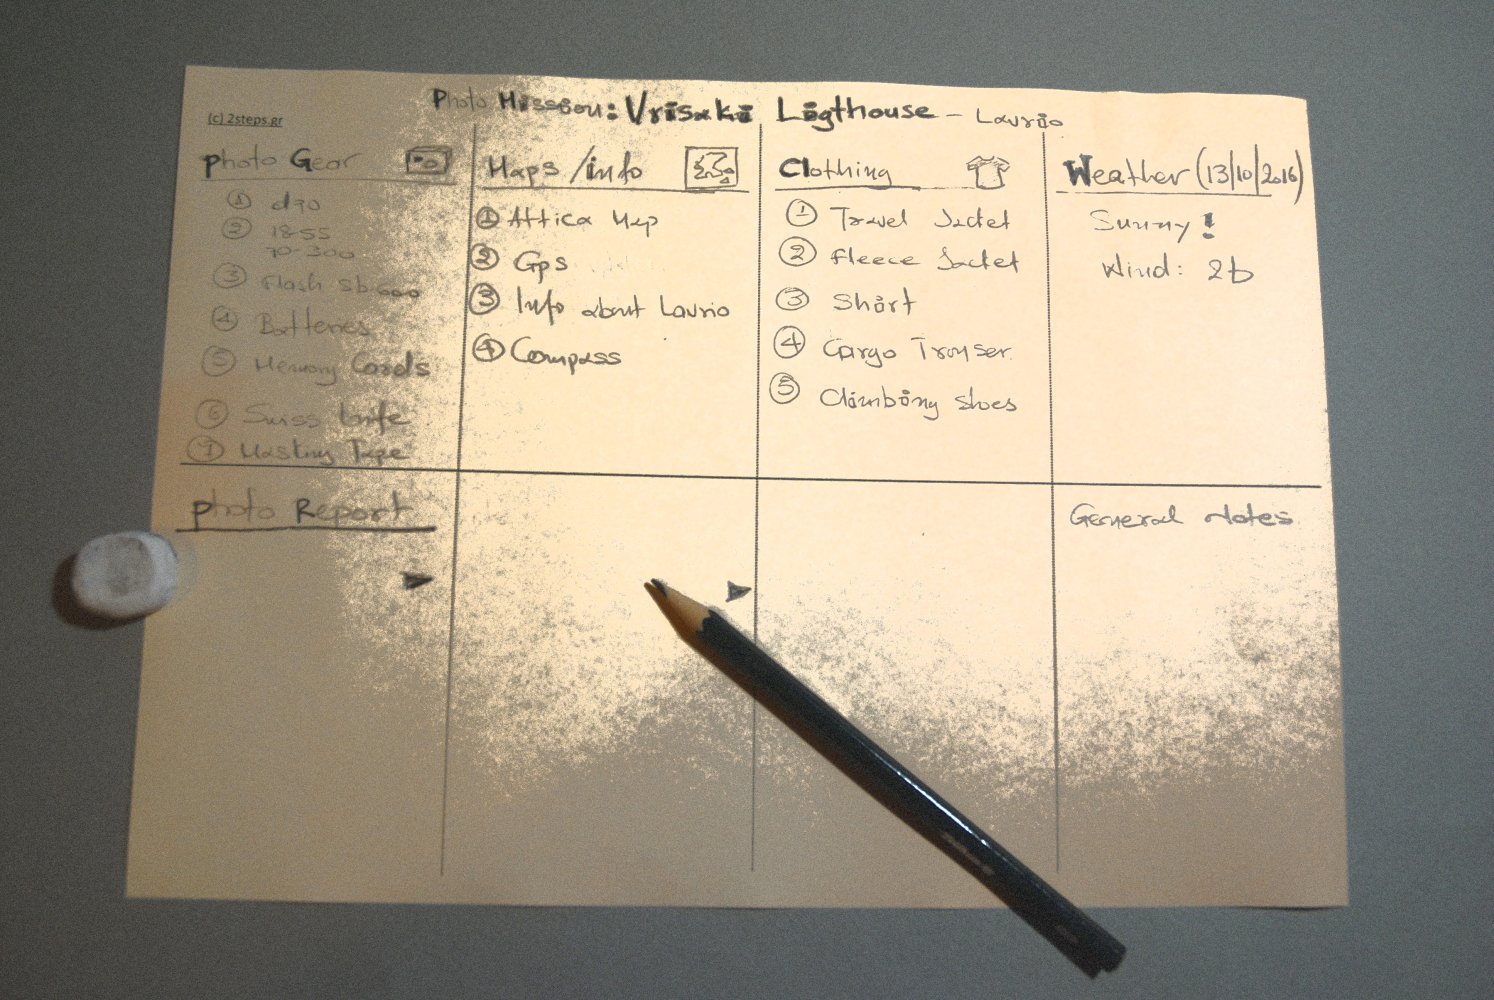 Photo Mission: Vrisaki Ligthouse - Lavrio
(c) 2steps.gr
Photo Gear
1 d90
2 18-55
70-300
3 Flash sb-600
4 Batteries
5 Memory Cards
6 Swiss knife
7 Masking Tape
Maps/info
1 Attica Map
2 Gps
3 Info about Lavrio
4 Compass
Clothing
1 Travel Jacket
2 fleece Jacket
3 Short
4 Cargo Trouser
5 Climbing shoes
Weather (13/10/2016)
Sunny!
Wind: 2b
Photo Report
General Notes